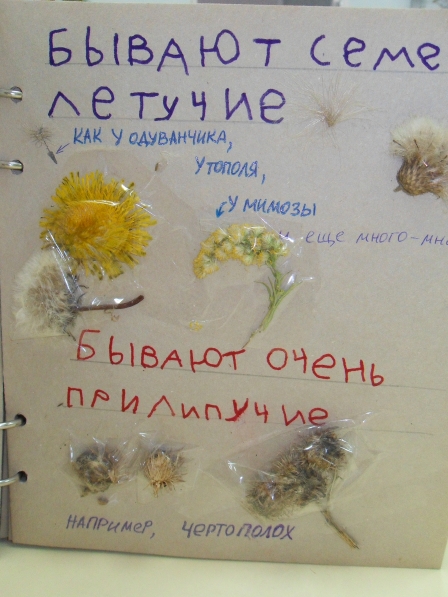 БЫВАЮТ СЕМЕ
ЛЕТУЧИЕ
КАК У ОДУВАНЧИКА,
У ТОПОЛЯ,
У МИМОЗЫ
И ЕЩЕ МНОГО-МНО
БЫВАЮТ ОЧЕНЬ
ПРИЛИПУЧИЕ
НАПРИМЕР, ЧЕРТОПОЛОХ